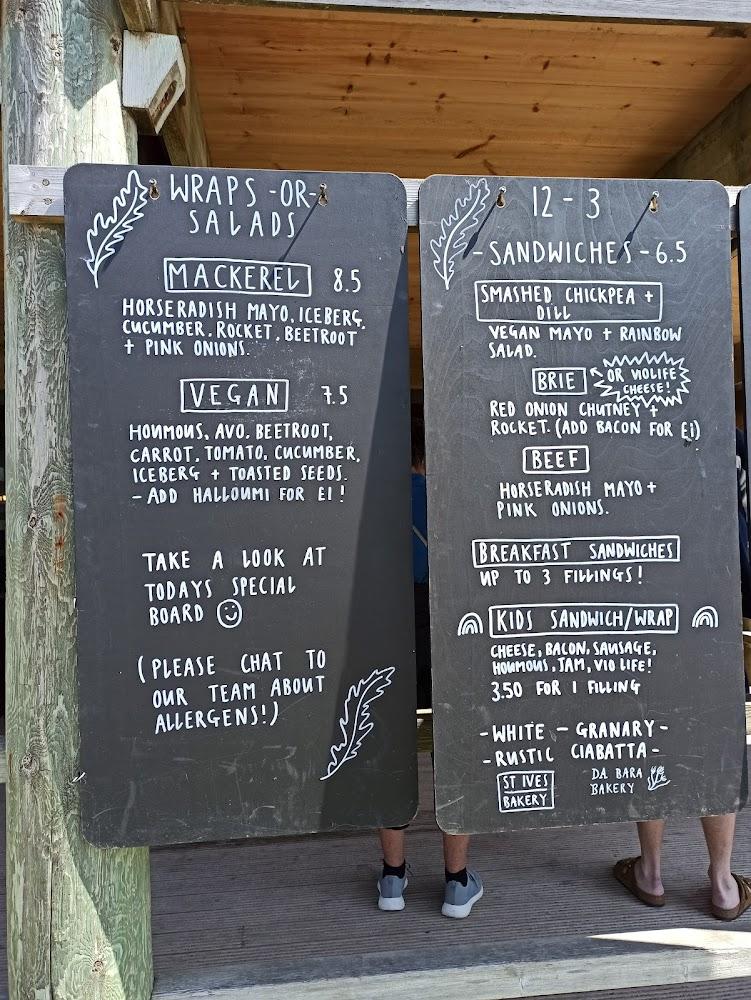 WRAPS -OR-
SALADS
MACKEREL 8.5
HORSERADISH MAYO, ICEBERG,
CUCUMBER, ROCKET, BEETROOT
+ PINK ONIONS.
VEGAN 7.5
HOUMOUS, AVO, BEETROOT,
CARROT, TOMATO, CUCUMBER,
ICEBERG + TOASTED SEEDS.
- ADD HALLOUMI FOR £1!
TAKE A LOOK AT
TODAYS SPECIAL
BOARD
(PLEASE CHAT TO
OUR TEAM ABOUT
ALLERGENS!)
12-3
-SANDWICHES-6.5
SMASHED CHICKPEA +
DILL
VEGAN MAYO + RAINBOW
SALAD.
BRIE OR VIOLIFE
CHEESE!
RED ONION CHUTNEY +
ROCKET. (ADD BACON FOR £1)
BEEF
HORSERADISH MAYO +
PINK ONIONS.
BREAKFAST SANDWICHES
UP TO 3 FILLINGS!
KIDS SANDWICH/WRAP
CHEESE, BACON, SAUSAGE,
HOUMOUS, JAM, VIOLIFE!
3.50 FOR 1 FILLING
-WHITE - GRANARY-
-RUSTIC CIABATTA-
ST IVES
BAKERY
DA BARA
BAKERY